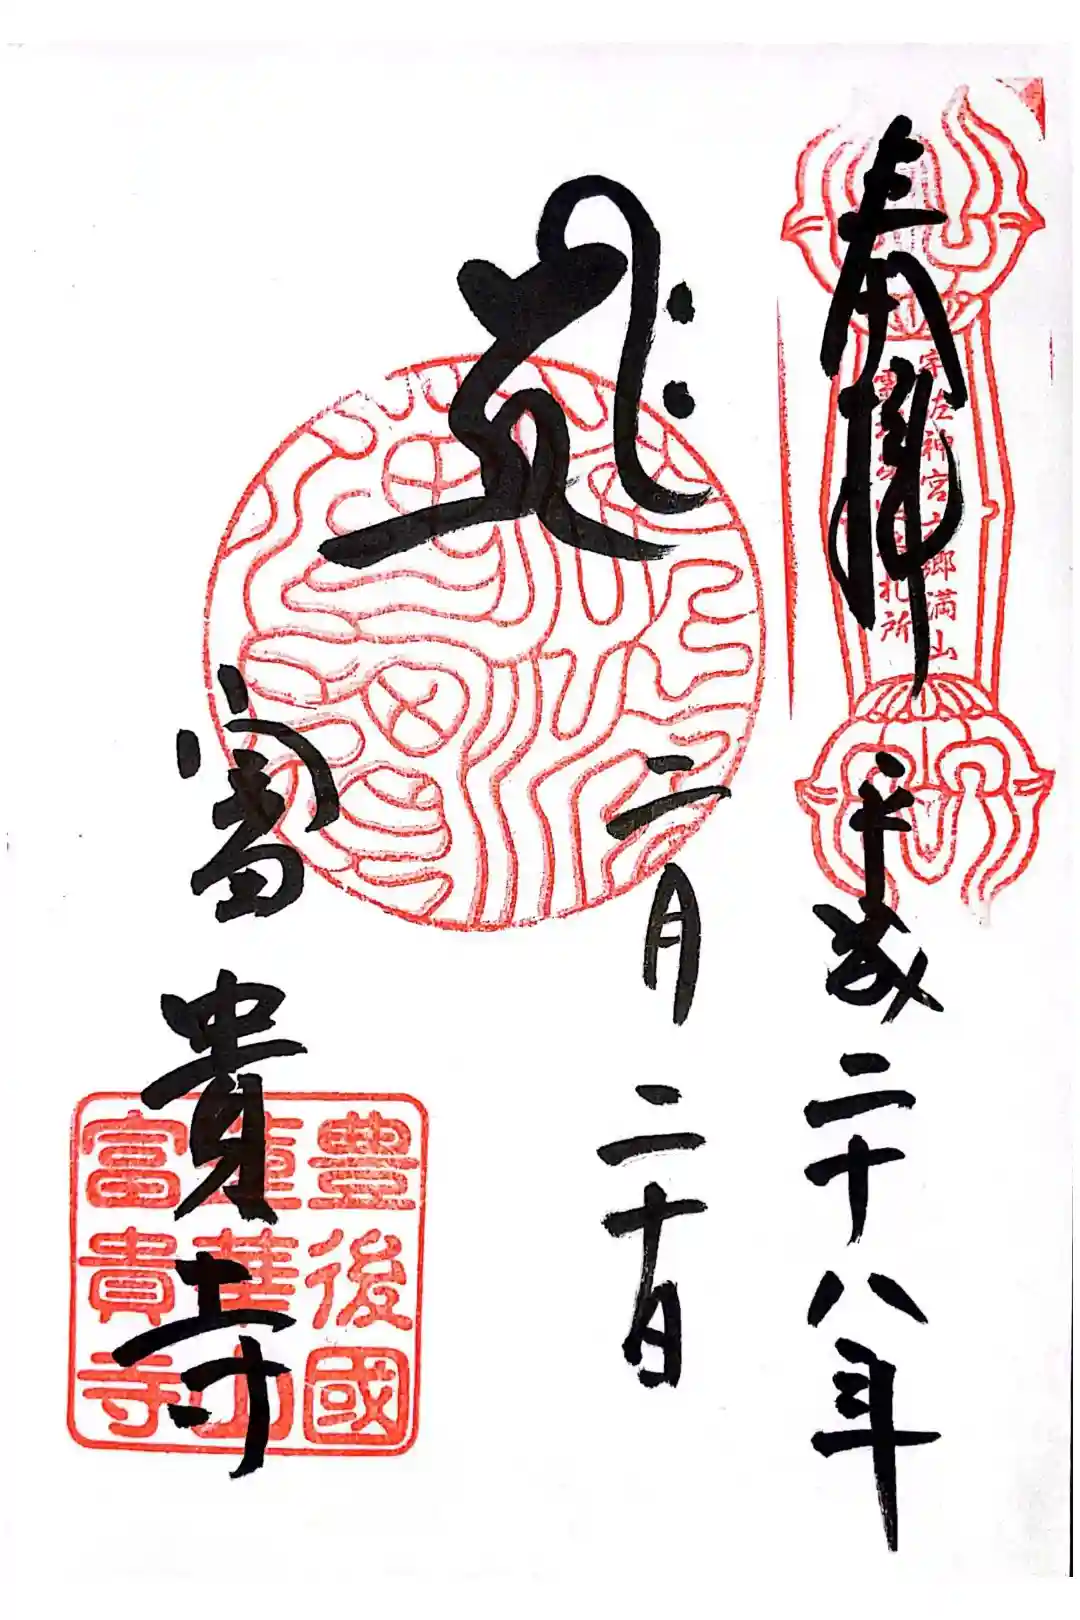 奉拝
宇佐神宮六郷満山
霊場第 番札所
平成二十八年
二月二十日
キリーク
富貴寺
豊後國
蓮華山
富貴寺